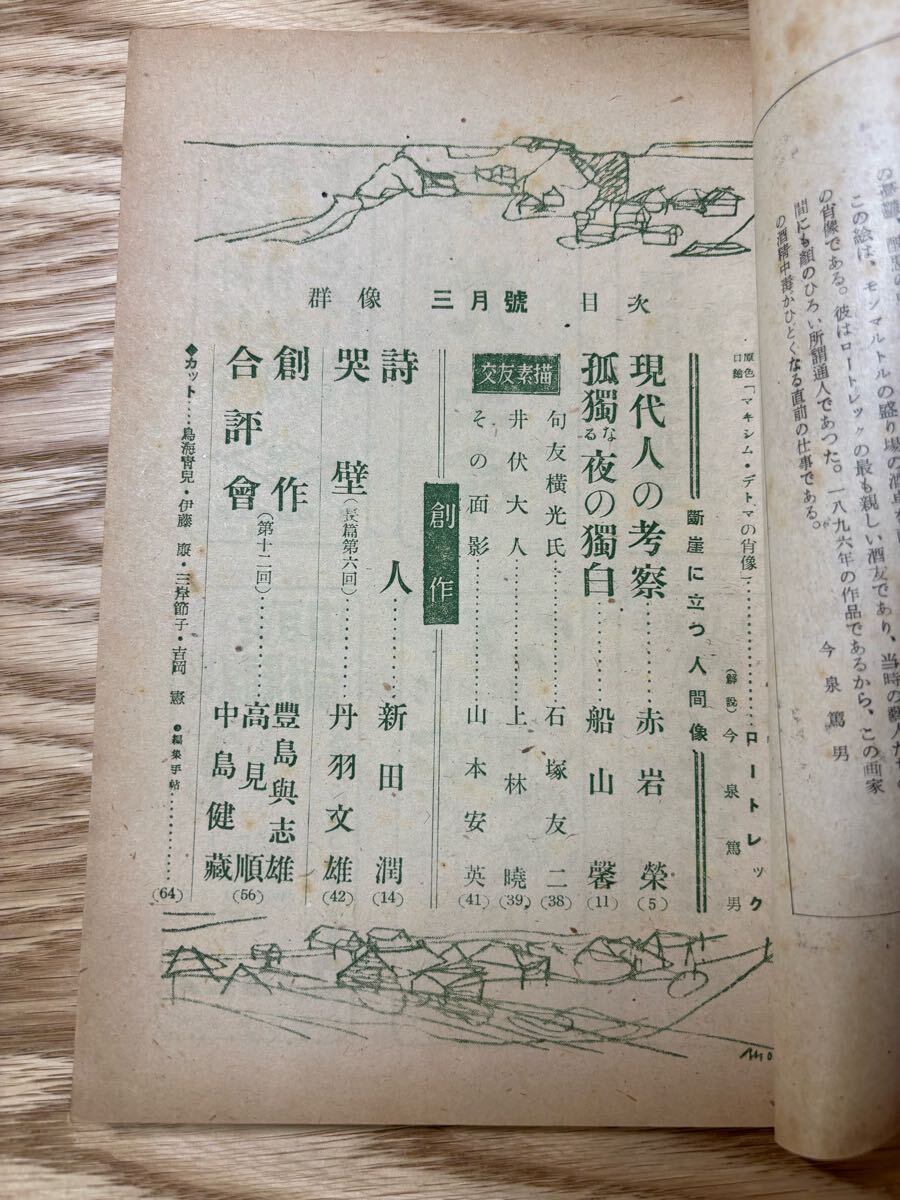 の酒精中毒がひどくなる直前の仕事である。
間にも顔のひろい所謂通人であつた。一八九六年の作品であるから、この画家
の肖像である。彼はロートレックの最も親しい酒友であり、当時の藝人たちの
この絵は、モンマルトルの盛り場の酒
今泉篤男
群像 三月號 目次
原色口繪「マキシム・デトマの肖像」…………ロートレック
（解説）今泉篤男
斷崖に立つ人間像
現代人の考察…………赤岩榮(5)
孤獨なる夜の獨白…………船山馨(11)
交友素描
句友横光氏…………石塚友二(38)
井伏大人…………上林曉(39)
その面影…………山本安英(41)
創作
詩人…………新田潤(14)
哭壁（長篇第六回）…………丹羽文雄(42)
創作合評會（第十二回）…………豐島與志雄
高見順(56)
中島健藏
◆カット……鳥海青兒・伊藤廉・三岸節子・吉岡憲
編集手帖…………(64)